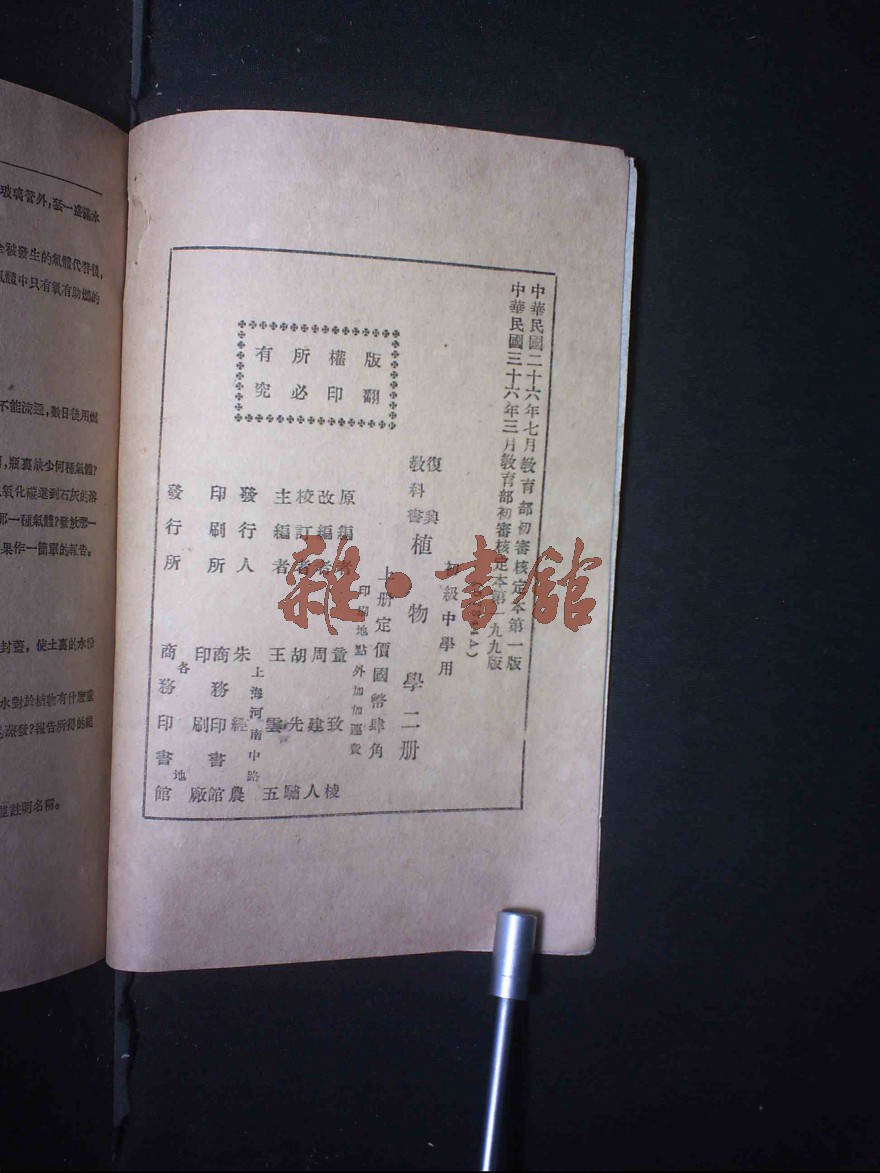 中華民國二十六年七月教育部初審核定本第一版
中華民國三十六年三月教育部初審核定本第一九九版
初級中學用
復興教科書 植物學二册
上册定價國幣肆角
印刷地點外加加運費
原編者 童致棱
改編者 周建人
校訂者 胡先驌
主編者 王雲五
發行人 朱經農
上海河南中路
印刷所 商務印書館
印刷廠
發行所 商務印書館
各地
版權所有
翻印必究
雜·書館
玻璃管外,套一盛滿水
發生的氣體代替後,
氣體中只有氧有助燃的
不能流通,數日後用燃
瓶裏缺少何種氣體?
氧化碳進到石灰的溶
那一種氣體?發放那一
果作一簡單的報告。
封蓋,使土裏的水份
水對於植物有什麼重
蒸發?報告所得的結
註明名稱。